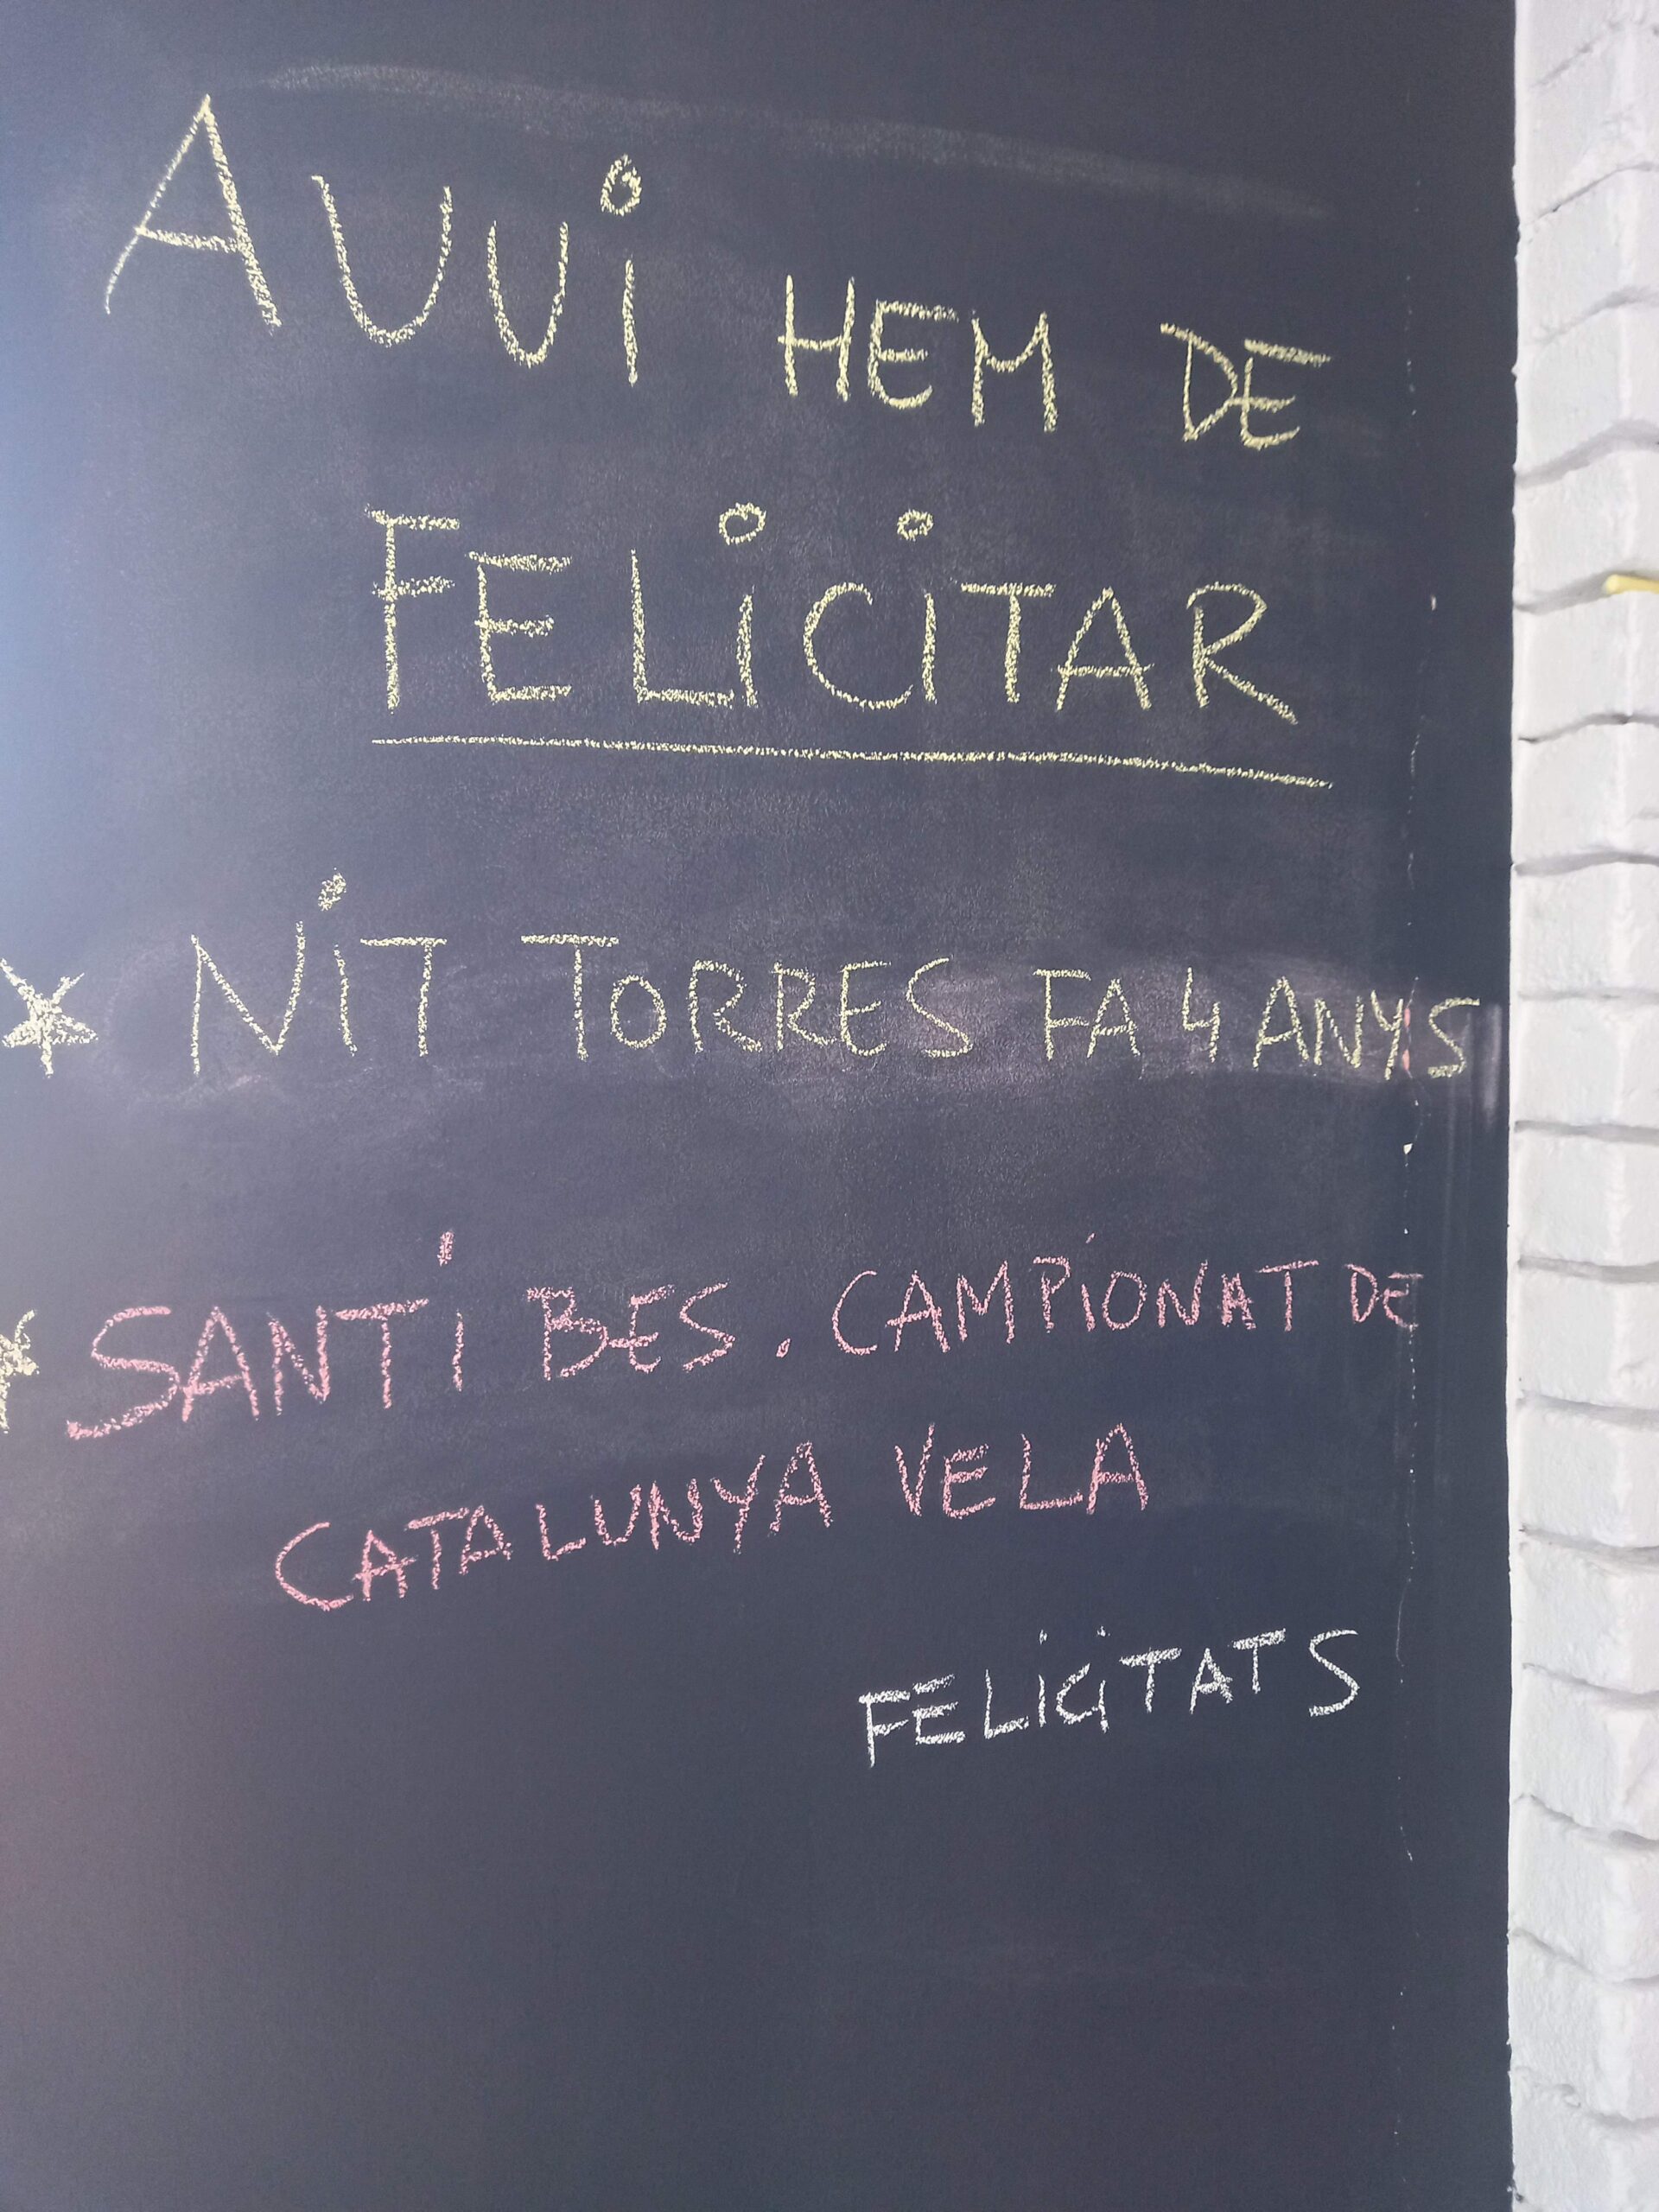 AUUi HEM DE
FELiCiTAR
NiT TORRES FA 4 ANYS
SANTi BES. CAMPiONAT DE
CATALUNYA VELA
FELiCiTATS